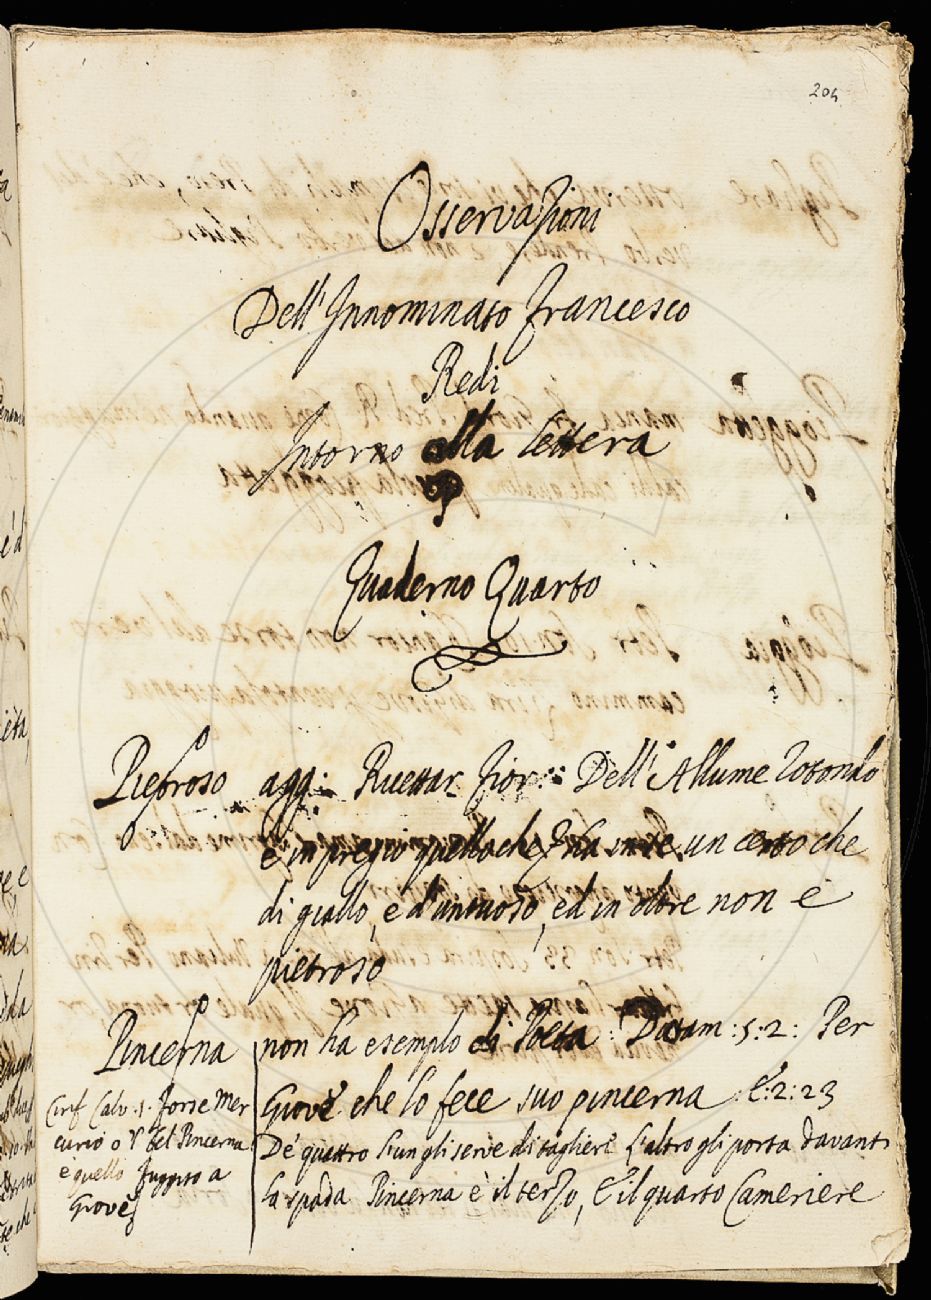 204
Osservazioni
Dell'Innominato Francesco
Redi
Intorno alla lettera
P
Quaderno Quarto
Pietroso agg: Ricettar. Fior: Dell'Allume rotondo
è in pregio quello che ha in se un certo che
di giallo, e d'untuoso, ed in oltre non è
pietroso
Pincerna non ha esemplo di Poeta: Dittam: 5: 2: Per
Giove che lo fece suo pincerna. E: 2: 23
De' quattro l'un gli serve di tagliere l'altro gli porta davanti
la spada Pincerna è il terzo, e il quarto Cameriere
Cirif Calv. 1. Forse Mer
curio o V del Pincerna
e quello fuggito a
Giove